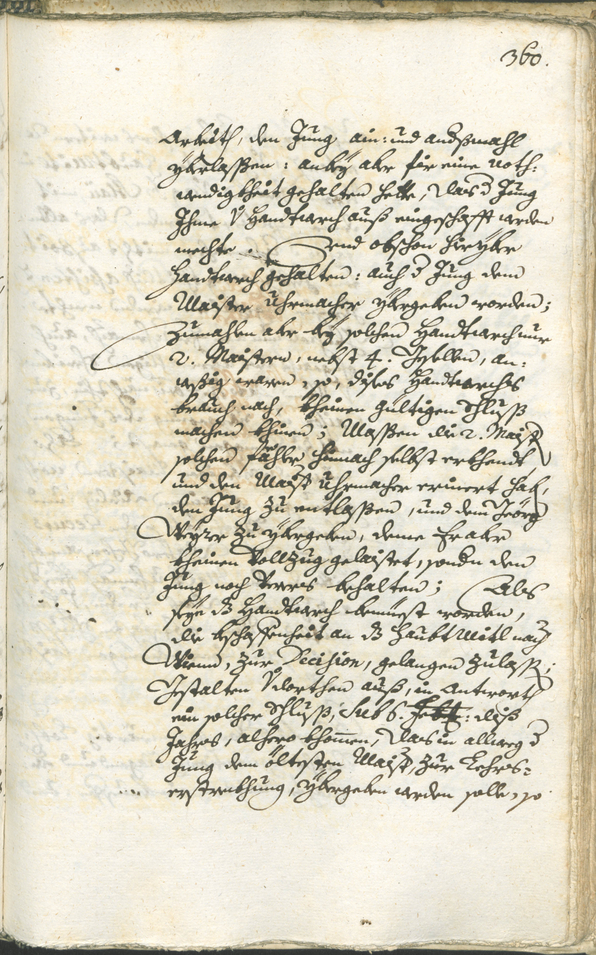 360.
Arbeith, den Jung ain: und andßmahl
yberlassen: anbey aber für eine noth:
wendigkheit gehalten hette, das d Jung
Ihme v Handtwerch auß eingeschafft werden
mechte. Und obschon hieryber
Handtwerch gehalten: auch d Jung dem
Maister Uhrmacher ybergeben worden;
Zumahlen aber bey solchen Handtwerch nur
2. Maistern, nebst 4. Gsellen, an:
wesig waren, so, dises Handtwerchs
brauch nach, kheinen gültigen Schluß
machen khinen; Massen die 2. Maistr
solchen Fähler hernach selbst erkhendt,
und den Maistr Uhrmacher erinert hab,
den Jung zu entlassen, und dem Georg
zu ybergeben, deme Er aber
kheinen Vollzug gelaistet, sondn den
Jung noch behalten; Als
seye ds Handtwerch bemüest worden,
die beschaffenheit an ds Haubt Mitl nach
Wienn, zur Decision, gelangen zulassen;
Gestalten v dorthen auß, in Antwort
ein solcher Schluß, sub 6. Febr: diß
Jahrs, alhero khommen, das in allweeg d
Jung dem öltesten Maistr, zur Lehrs:
erstreckhung, ybergeben werden solle, so